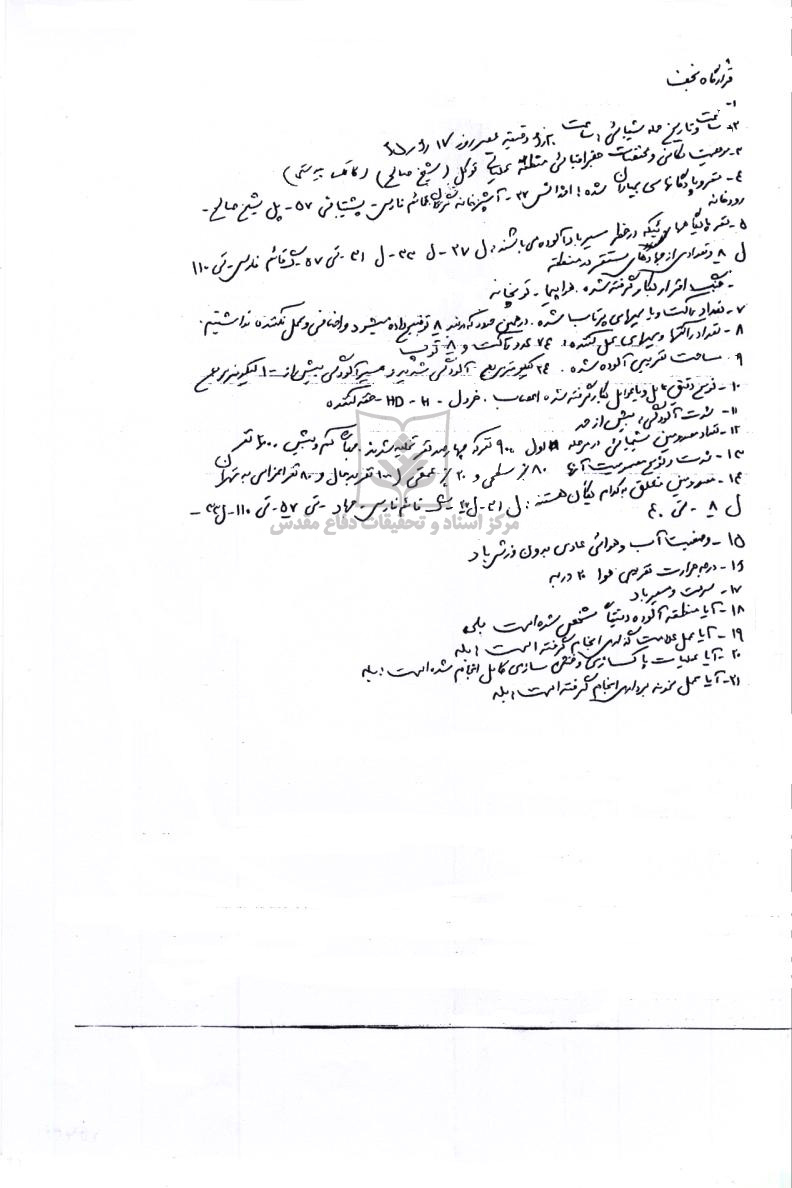 قرارگاه نجف
۱-
۲- ساعت و تاریخ حمله شیمیائی: ساعت دقیقه عصر روز ۱۷
۳- موقعیت مکانی و مختصات جغرافیائی منطقه عملیاتی توکل (شیخ صالح) (کالک پیوستی)
۴- مقر و یا یگانهای بمباران شده: اورژانس ۳۲ - آشپزخانه قائم فارس - پشتیبانی ۵۷ - پل شیخ صالح -
رودخانه
۵- مقر یگانهائیکه در خطر مسیر باد آلوده می باشند: ل ۲۷ - ل ۳۳ - ل ۳۱ - تی ۵۷ - قائم فارس - تی ۱۱۰
ل ۸ و تعدادی از جهادهای مستقر در منطقه
- جنگ افزار بکار گرفته شده. هواپیما - توپخانه
۷- تعداد راکت و یا بمبهای پرتاب شده. در ضمن توضیح داده میشود و اضافی و عمل نکننده نداشتیم.
۸- تعداد راکتها و بمبهای عمل کننده: ۷۴ عدد راکت و ۸ توپ
۹- مساحت تقریبی آلوده شده. ۲۴ کیلومتر مربع - آلودگی شدید و مسیر آلودگی بیش از ۱۰۰ کیلومتر مربع
۱۰- نوع دقیق عامل و یا عوامل بکار گرفته شده اعصاب. خردل - HD - H - خفه کننده
۱۱- شدت آلودگی: بیش از حد
۱۲- تعداد مصدومین شیمیائی در مرحله اول ۹۰۰ نفر که چهارصد نفر تخلیه شدند. ۲۰۰ نفر
۱۳- شدت و نوع مصدومیت آنها ۸۰٪ سطحی و ۲۰٪ عمقی (۱۰۰ نفر بدحال و ۸۰ نفر اعزامی به تهران
۱۴- مصدومین متعلق به کدام یگان هستند: ل ۳۱ - ل ۲۷ - قائم فارس - جهاد - تی ۵۷ - تی ۱۱۰ - ل ۳۳ -
ل ۸ - تی ۴۰
مرکز اسناد و تحقیقات دفاع مقدس
۱۵- وضعیت آب و هوائی عادی بدون وزش باد
۱۶- درجه حرارت تقریبی هوا ۲۰ درجه
۱۷- سرعت و مسیر باد
۱۸- آیا منطقه آلوده دقیقاً مشخص شده است بلی
۱۹- آیا عمل علامت گذاری انجام گرفته است: بله
۲۰- آیا عملیات پاکسازی و خنثی سازی کامل انجام شده است: بله
۲۱- آیا عمل نمونه برداری انجام گرفته است: بله